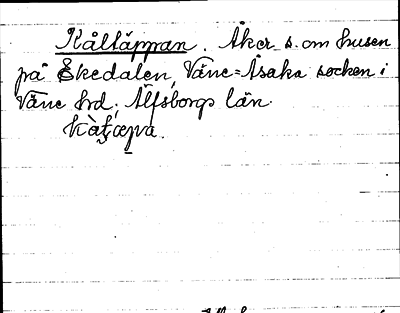 Kålläppan. Åker s. om husen
på Ekedalen, Väne-Åsaka socken i
Väne hrd, Älfsborgs län.